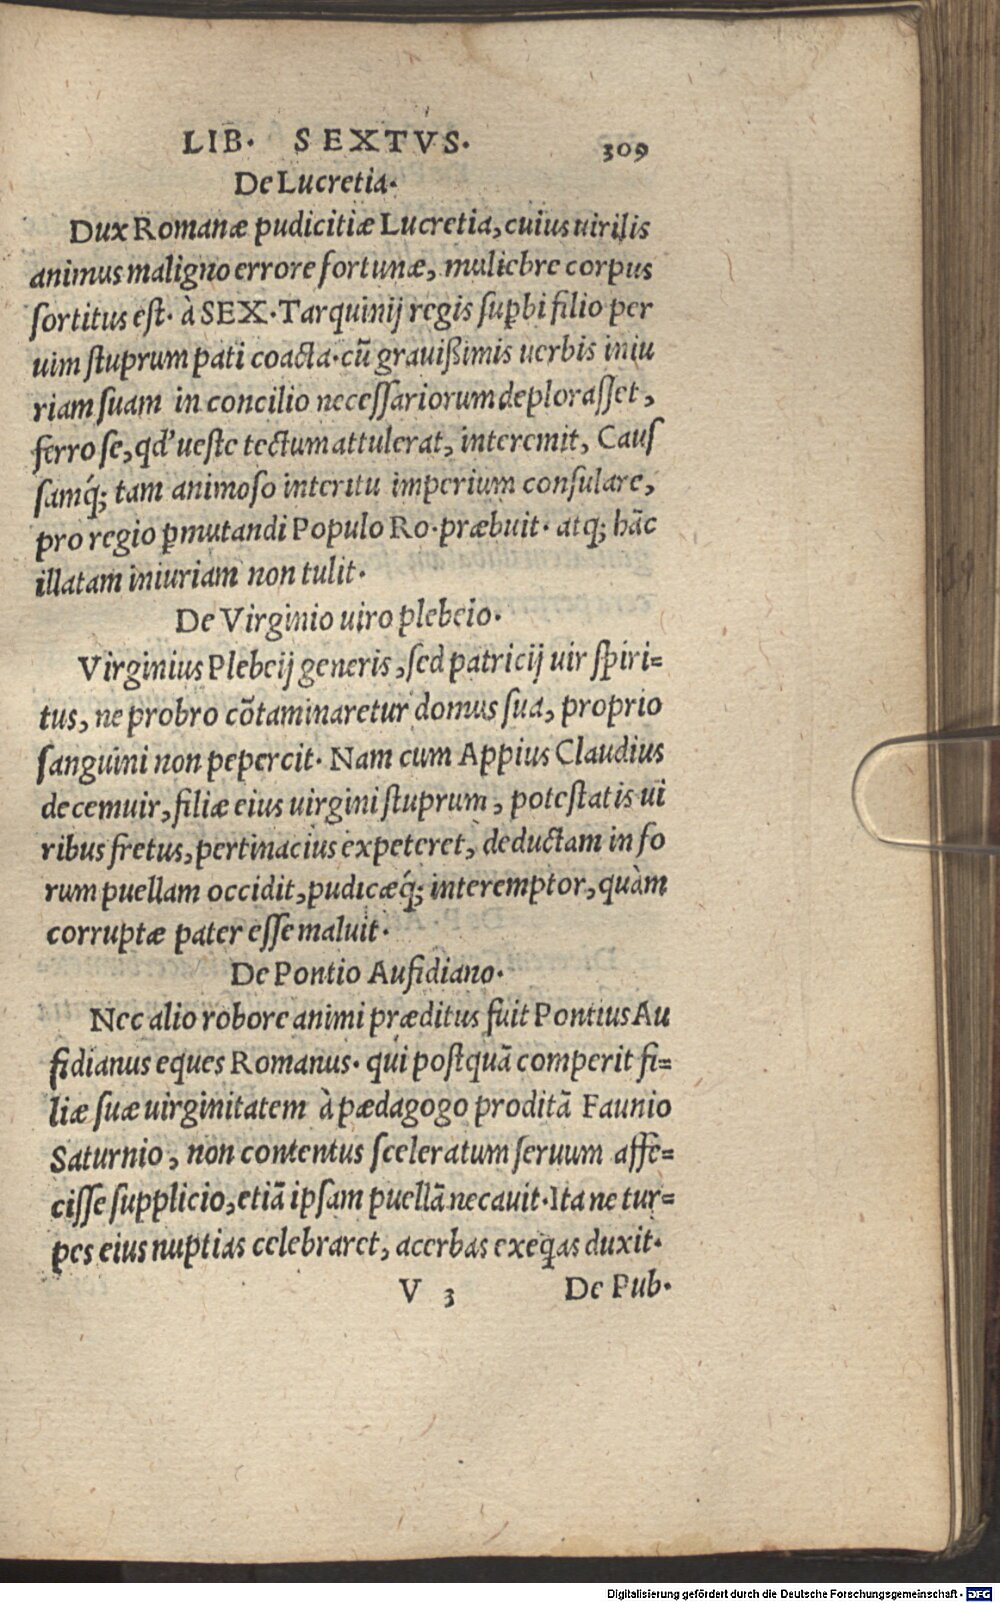 LIB. SEXTVS. 309
De Lucretia.
Dux Romanæ pudicitiæ Lucretia, cuius uirilis
animus maligno errore fortunæ, muliebre corpus
sortitus est. à SEX. Tarquinij regis sup̱bi filio per
uim stuprum pati coacta. cũ grauißimis uerbis iniu
riam suam in concilio necessariorum deplorasset,
ferro se, qd' ueste tectum attulerat, interemit, Caus
samq́; tam animoso interitu imperium consulare,
pro regio p̱mutandi Populo Ro. præbuit. atq; hãc
illatam iniuriam non tulit.
De Virginio uiro plebeio.
Virginius Plebeij generis, sed patricij uir spiri=
tus, ne probro cõtaminaretur domus sua, proprio
sanguini non pepercit. Nam cum Appius Claudius
decemuir, filiæ eius uirgini stuprum, potestatis ui
ribus fretus, pertinacius expeteret, deductam in fo
rum puellam occidit, pudicæq́; interemptor, quàm
corruptæ pater esse maluit.
De Pontio Aufidiano.
Nec alio robore animi præditus fuit Pontius Au
fidianus eques Romanus. qui postquã comperit fi=
liæ suæ uirginitatem à pædagogo proditã Faunio
Saturnio, non contentus sceleratum seruum affe=
cisse supplicio, etiã ipsam puellã necauit. Ita ne tur=
pes eius nuptias celebraret, acerbas exeq̃as duxit.
V 3 De Pub.
Digitalisierung gefördert durch die Deutsche Forschungsgemeinschaft - DFG